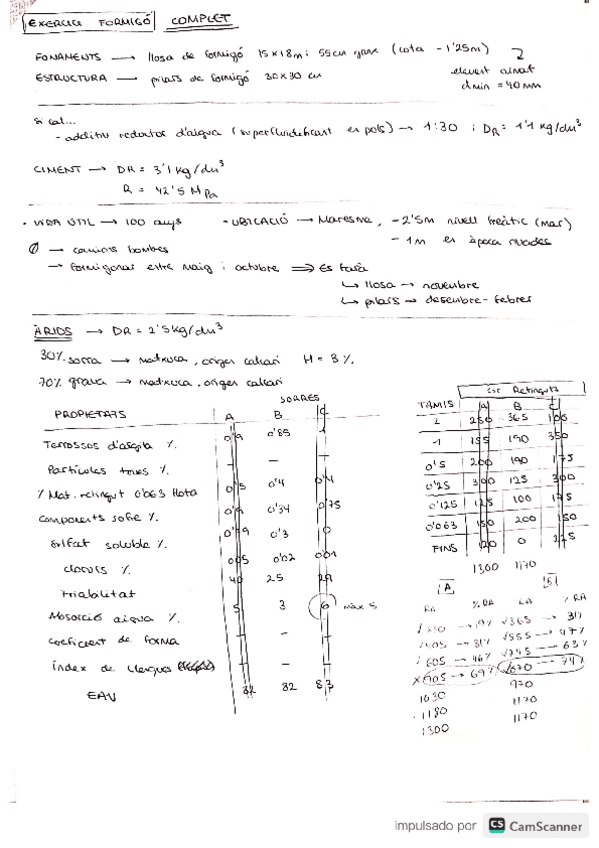 EXERCICI FORMIGÓ COMPLET
FONAMENTS → llosa de formigó 15x18m i 55cm gruix (cota -1'25m)
ESTRUCTURA → pilars de formigó 30x30 cm
element armat
dmin = 40 mm
Si cal...
- additiu reductor d'aigua (superfluidificant en pols) → 1:30 i DR = 1'1 kg/dm³
CIMENT → DR = 3'1 kg/dm³
R = 42'5 MPa
• VIDA ÚTIL → 100 anys • UBICACIÓ → Maresme, -2'5m nivell freàtic (mar)
-1m en època riuades
→ camions bombes
→ Formigonar entre Maig i octubre ⇒ Es farà
↳ llosa → novembre
↳ pilars → desembre-febrer
ÀRIDS → DR = 2'5 kg/dm³
30% sorra → matxuca, origen calcari H = 3%
70% grava → matxuca, origen calcari
SORRES
PROPIETATS A B C
Terrossos d'argila % 0'9 0'85 1
Partícules toves % - - -
% Mat. retingut 0'063 flota 0'5 0'4 0'4
Components sofre % 0'9 0'34 0'75
Sulfat soluble % 0'9 0'3 0
Clorurs % 0'05 0'02 0'01
Friabilitat 40 25 29
Absorció aigua % 5 3 6 màx 5
Coeficient de forma - - -
Índex de llengues - - -
EAV 82 82 83
Retinguts
TAMIS A B C
2 250 365 100
1 155 190 350
0'5 200 190 175
0'25 300 125 300
0'125 125 100 175
0'063 150 200 150
FINS 120 0 225
1300 1170
A B
RA % RA RA % RA
250 → 19% 365 → 31%
405 → 31% 555 → 47%
605 → 46% 745 → 63%
905 → 69% 870 → 74%
1030 970
1180 1170
1300 1170
impulsado por CS CamScanner